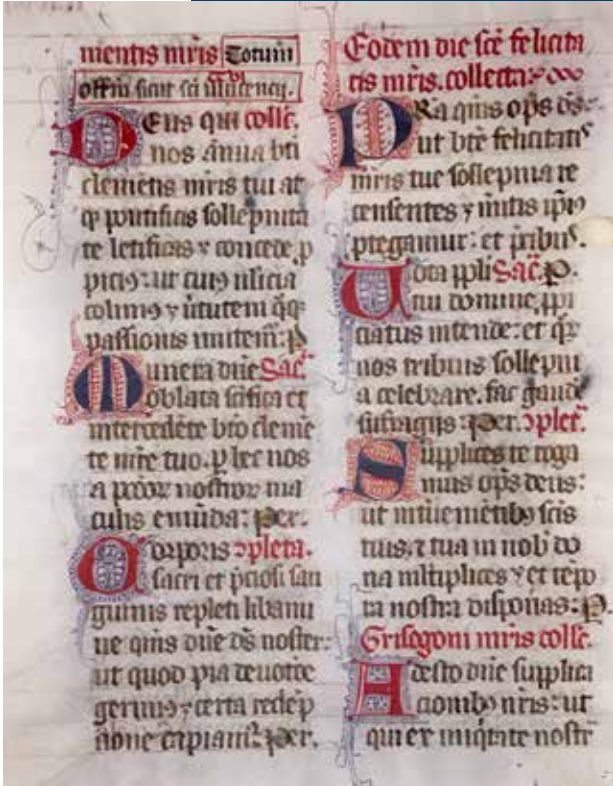 mentis mr̄is Totum
offm̄ sicut sc̄i
Deus qui coll̄c.
nos annua bti
clemētis mr̄is tui at
qȝ pontificis sollēpnita
te letificas ⁊ concede, p
piciꝰ: ut cuiꝰ nlicia
colimꝰ ⁊ v̄tutem q̄qȝ
passionis imitem̄: p̄
Munera dn̄e Sac̄.
oblata sc̄ifica et
intercedēte bt̄o cleme
te mr̄e tuo. ꝑ hec nos
a pccōꝝ nostroꝝ ma
culis emūda: Per.
Corporis ↄpleta.
sacri et p̄ciosi san
guinis repleti libami
ne qms̄ dn̄e ds̄ noster:
ut quod pia deuotōe
gerimꝰ ⁊ certa redēp
tione capiam̄: Per.
Eodem die sc̄e felicita
tis mr̄is. collecta:
PRa qms̄ op̄s ds̄
ut bt̄e felicitatꝰ
mr̄is tue sollepnia re
censentes ⁊ m̄itis ip̄iꝰ
ꝓtegamur: et p̄cibꝰ.
Uota ppli Sac̄. P.
tui domine, ꝓpi
ciatus intende: et qꝝ
nos tribuis sollepni
a celebrare. fac gaude
suffragiis: Per. ↄplet̄.
Supplices te roga
mus op̄s deus:
ut int̄ueniētibꝰ sc̄is
tuis. ⁊ tua in nob̄ do
na mltiplices ⁊ et tēpo
ra nostra disponas: P.
Grisogoni mr̄is coll̄c.
Adesto dn̄e supplica
tionibꝰ nr̄is: ut
qui ex iniq̄tate nostr̄